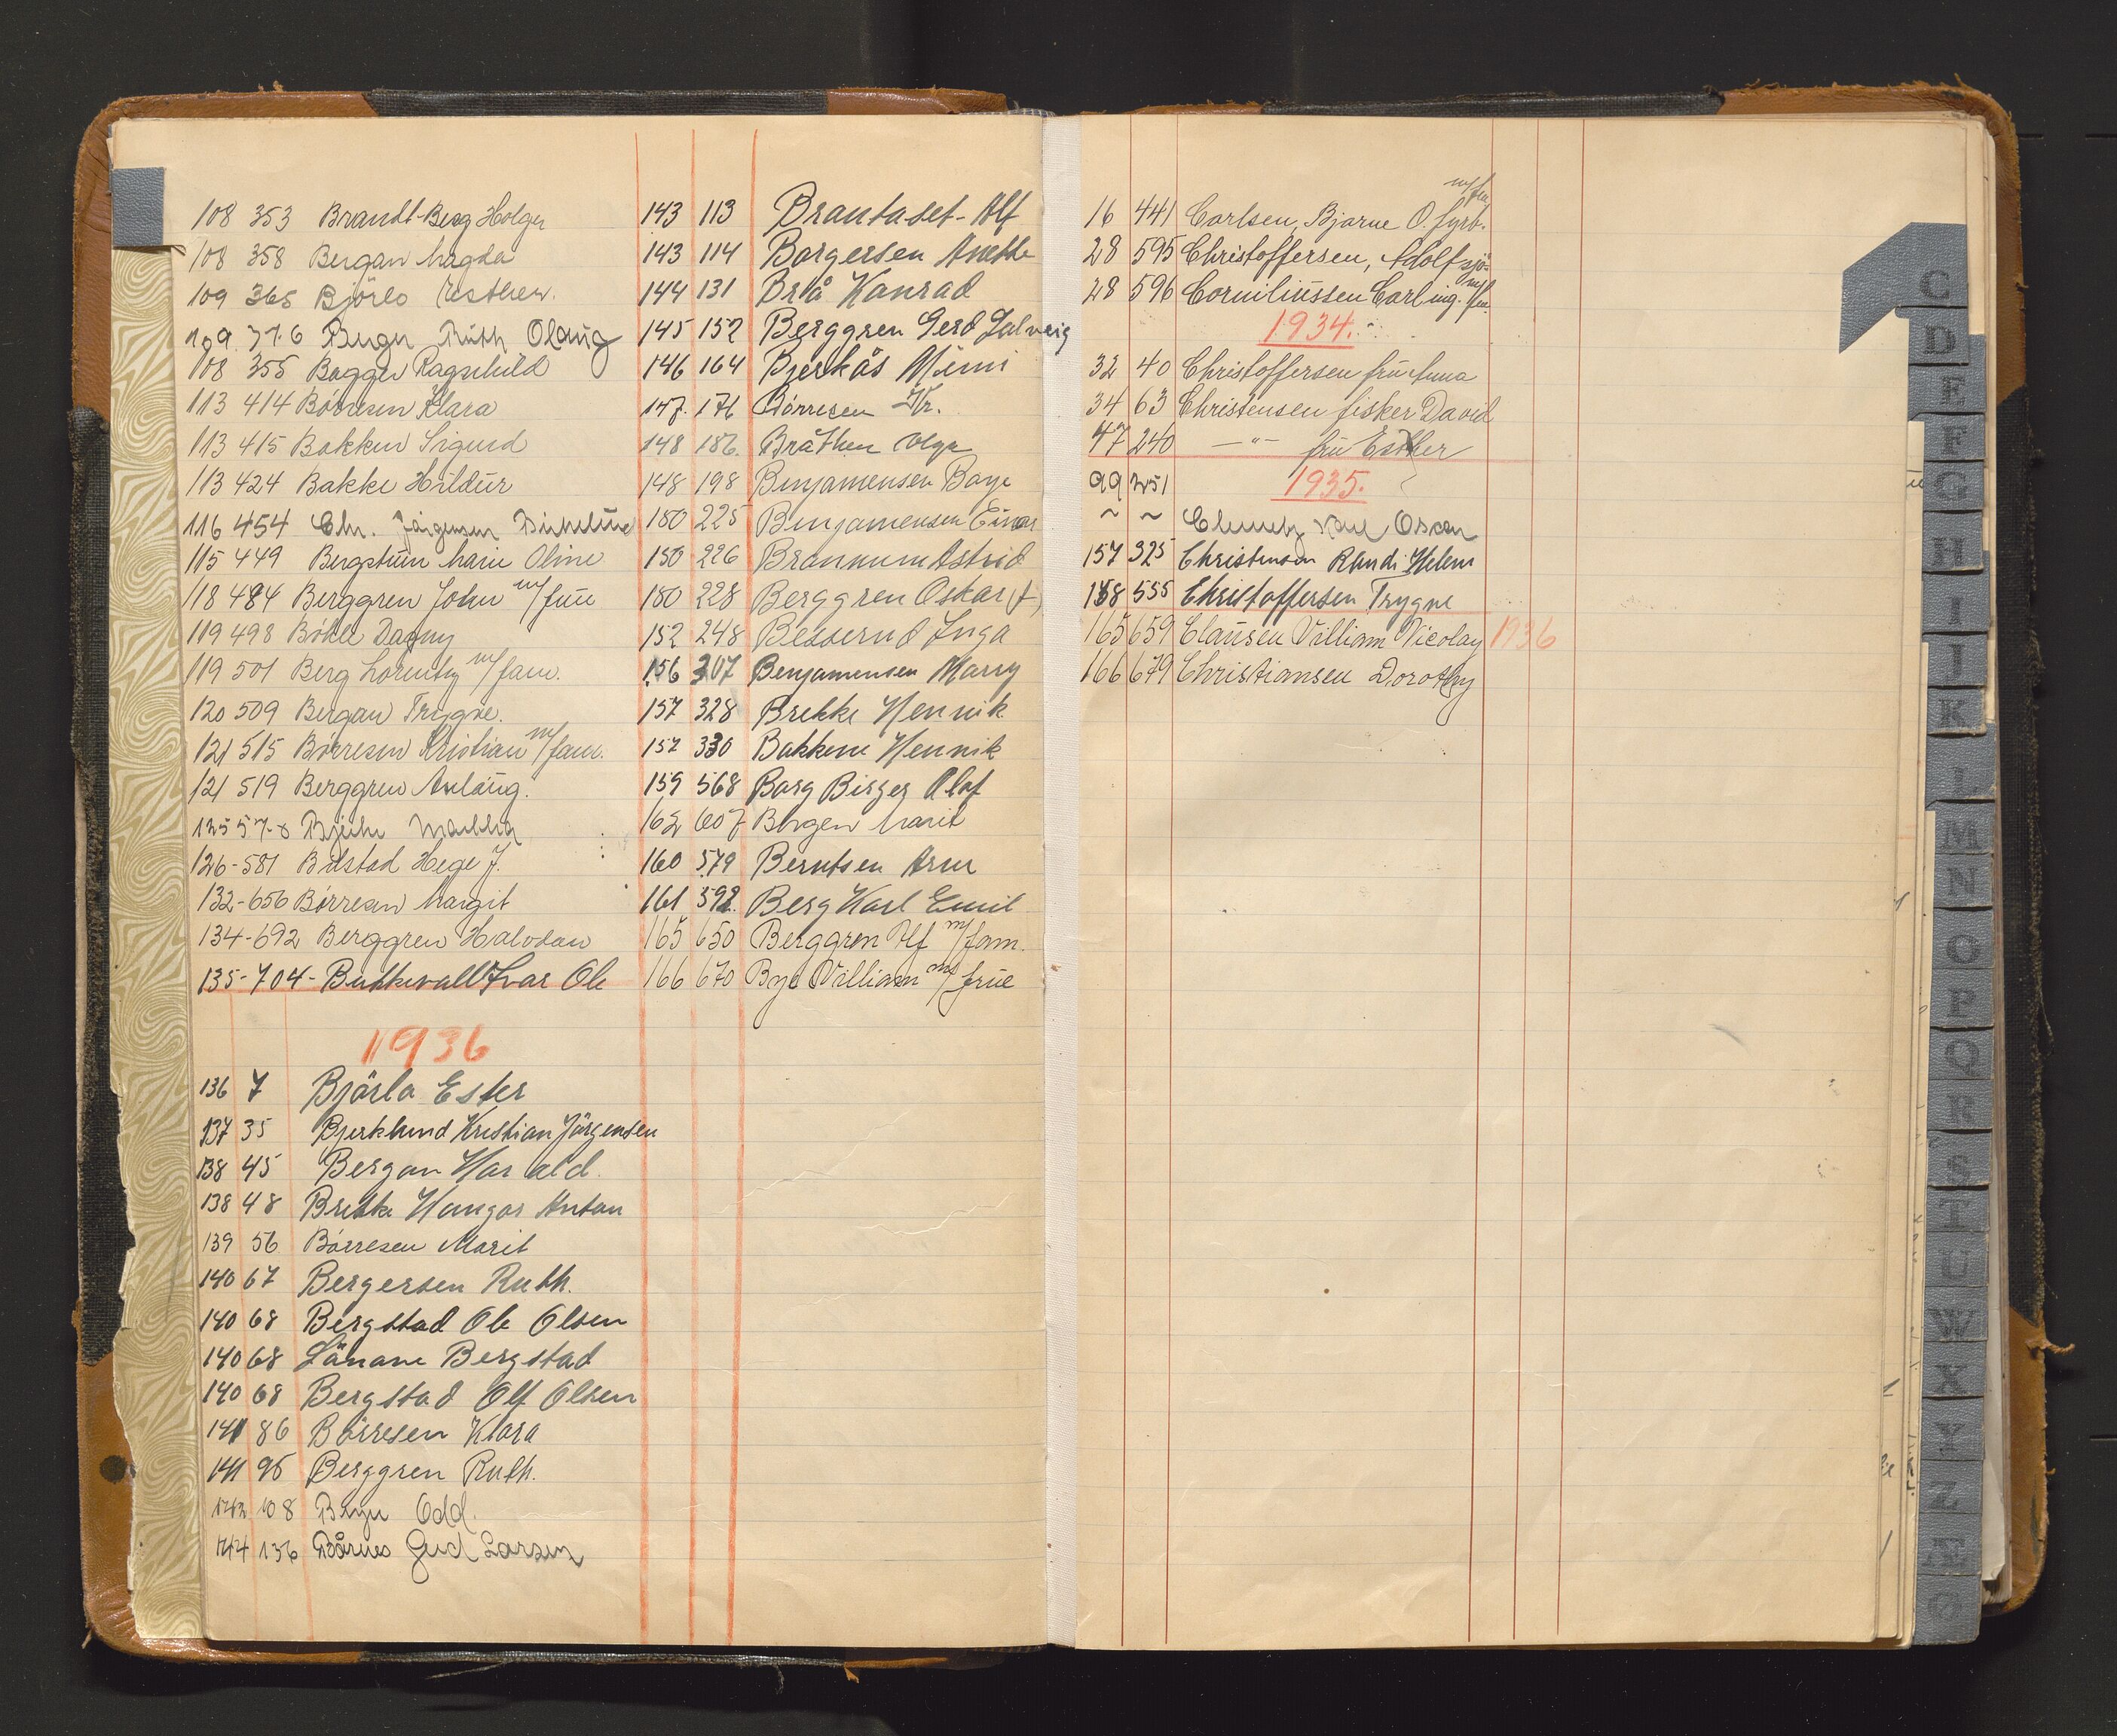 108 353 Brandt-Berg Holger
108 358 Bergan Magda
109 365 Bjørlo Esther.
109 376 Ruth Olaug
108 355 Bagger Ragnhild
113 414 Børresen Klara
113 415 Bakken Sigurd
113 424 Bakke Hildur
116 454 Chr. Jørgensen
115 449 Marie Oline
118 484 Berggren John m/frue
119 498 Dagny
119 501 Berg m/fam.
120 509 Bergan Trygve.
121 515 Børresen Kristian m/fam.
121 519 Berggren Aslaug.
125 57
126-581 Hege J.
132-656 Børresen Margit
134-692 Berggren Halvdan
135-704- Ivar Ole
1936
136 7 Bjørlo Ester
137 35 Bjerklund Kristian Jørgensen
138 45 Bergan Harald.
138 48 Brekke Anton
139 56 Børresen Marit
140 67 Bergersen Ruth.
140 68 Bergstad Ole Olsen
140 68 Bergstad
140 68 Bergstad Olf Olsen
141 86 Børresen Klara
141 95 Berggren Ruth.
142 108 Odd.
144 136 Larsen
143 113 Brantaset- Alf
143 114 Borgersen Anette
144 131 Brå Konrad
145 152 Berggren Gerd Solveig
146 164 Bjerkås Mimi
147. 176 Børresen Kr.
148 186. Bråthen Olga
148 198 Benjamensen Borge
150 225 Benjamensen Einar
150 226 Astrid
150 228 Berggren Oskar (f)
152 248 Inga
156 307 Benjamensen Marry
157 328 Brekke Henrik
157 330 Bakkene Henrik
159 568 Borg Birger Olaf
162 607 Borgen Marit
160 579 Berntsen Arne
161 592. Berg Karl Emil
165 650 Berggren Alf m/fam.
166 670 Bye William m/frue
m/fru
16 441 Carlsen, Bjarne O. fyrb.
28 595 Christoffersen, Adolf sjö-
28 596 Corniliussen Carl ing. m/fru.
1934.-
32 40 Christoffersen fru Anna
34 63 Christensen fisker David
47 240 —"— fru Esther
99 251 1935.
~ ~ Karl Oscar
157 325 Christensen Randi Helene
158 555 Christoffersen Trygve
165 659 Clausen Villiam Nicolay 1936
166 679 Christiansen Dorothy
C
D
E
F
G
H
I
J
K
L
M
N
O
P
Q
R
S
T
U
W
X
Y
Z
Æ
Ø